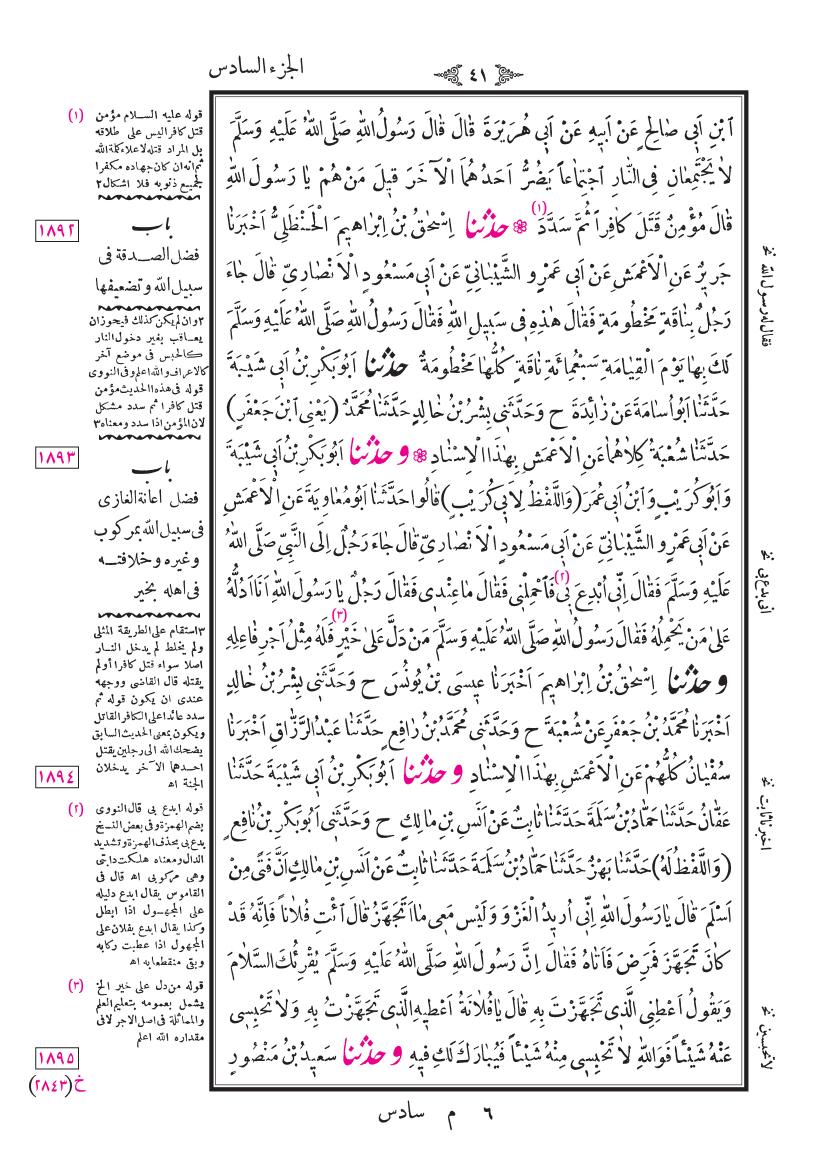 الجزء السادس
٤١
ابْنِ اَبِي صَالِحٍ عَنْ اَبِيهِ عَنْ اَبِي هُرَيْرَةَ قَالَ قَالَ رَسُولُ اللهِ صَلَّى اللهُ عَلَيْهِ وَسَلَّمَ
لَا يَجْتَمِعَانِ فِى النَّارِ اجْتِمَاعاً يَضُرُّ اَحَدُهُمَا الْآخَرَ قِيلَ مَنْ هُمْ يَا رَسُولَ اللهِ
قَالَ مُؤْمِنٌ قَتَلَ كَافِراً ثُمَّ سَدَّدَ (١) ❁ حَدَّثَنَا اِسْحٰقُ بْنُ اِبْرَاهِيمَ الْحَنْظَلِيُّ اَخْبَرَنَا
جَرِيرٌ عَنِ الْاَعْمَشِ عَنْ اَبِي عَمْرٍو الشَّيْبَانِيِّ عَنْ اَبِي مَسْعُودٍ الْاَنْصَارِيِّ قَالَ جَاءَ
رَجُلٌ بِنَاقَةٍ مَخْطُومَةٍ فَقَالَ هٰذِهِ فِي سَبِيلِ اللهِ فَقَالَ رَسُولُ اللهِ صَلَّى اللهُ عَلَيْهِ وَسَلَّمَ
لَكَ بِهَا يَوْمَ الْقِيَامَةِ سَبْعُمِائَةِ نَاقَةٍ كُلُّهَا مَخْطُومَةٌ حَدَّثَنَا اَبُو بَكْرِ بْنُ اَبِي شَيْبَةَ
حَدَّثَنَا اَبُو اُسَامَةَ عَنْ زَائِدَةَ ح وَحَدَّثَنِي بِشْرُ بْنُ خَالِدٍ حَدَّثَنَا مُحَمَّدٌ (يَعْنِي ابْنَ جَعْفَرٍ)
حَدَّثَنَا شُعْبَةُ كِلَاهُمَا عَنِ الْاَعْمَشِ بِهٰذَا الْاِسْنَادِ ❁ وحَدَّثَنَا اَبُو بَكْرِ بْنُ اَبِي شَيْبَةَ
وَاَبُو كُرَيْبٍ وَابْنُ اَبِي عُمَرَ (وَاللَّفْظُ لِاَبِي كُرَيْبٍ) قَالُوا حَدَّثَنَا اَبُو مُعَاوِيَةَ عَنِ الْاَعْمَشِ
عَنْ اَبِي عَمْرٍو الشَّيْبَانِيِّ عَنْ اَبِي مَسْعُودٍ الْاَنْصَارِيِّ قَالَ جَاءَ رَجُلٌ اِلَى النَّبِيِّ صَلَّى اللهُ
عَلَيْهِ وَسَلَّمَ فَقَالَ اِنِّي اُبْدِعَ بِي (٢) فَاحْمِلْنِي فَقَالَ مَا عِنْدِي فَقَالَ رَجُلٌ يَا رَسُولَ اللهِ اَنَا اَدُلُّهُ
عَلَى مَنْ يَحْمِلُهُ فَقَالَ رَسُولُ اللهِ صَلَّى اللهُ عَلَيْهِ وَسَلَّمَ مَنْ دَلَّ عَلَى خَيْرٍ (٣) فَلَهُ مِثْلُ اَجْرِ فَاعِلِهِ
وحَدَّثَنَا اِسْحٰقُ بْنُ اِبْرَاهِيمَ اَخْبَرَنَا عِيسَى بْنُ يُونُسَ ح وَحَدَّثَنِي بِشْرُ بْنُ خَالِدٍ
اَخْبَرَنَا مُحَمَّدُ بْنُ جَعْفَرٍ عَنْ شُعْبَةَ ح وَحَدَّثَنِي مُحَمَّدُ بْنُ رَافِعٍ حَدَّثَنَا عَبْدُ الرَّزَّاقِ اَخْبَرَنَا
سُفْيَانُ كُلُّهُمْ عَنِ الْاَعْمَشِ بِهٰذَا الْاِسْنَادِ وحَدَّثَنَا اَبُو بَكْرِ بْنُ اَبِي شَيْبَةَ حَدَّثَنَا
عَفَّانُ حَدَّثَنَا حَمَّادُ بْنُ سَلَمَةَ حَدَّثَنَا ثَابِتٌ عَنْ اَنَسِ بْنِ مَالِكٍ ح وَحَدَّثَنِي اَبُو بَكْرِ بْنُ نَافِعٍ
(وَاللَّفْظُ لَهُ) حَدَّثَنَا بَهْزٌ حَدَّثَنَا حَمَّادُ بْنُ سَلَمَةَ حَدَّثَنَا ثَابِتٌ عَنْ اَنَسِ بْنِ مَالِكٍ اَنَّ فَتًى مِنْ
اَسْلَمَ قَالَ يَا رَسُولَ اللهِ اِنِّي اُرِيدُ الْغَزْوَ وَلَيْسَ مَعِي مَا اَتَجَهَّزُ قَالَ ائْتِ فُلَاناً فَاِنَّهُ قَدْ
كَانَ تَجَهَّزَ فَمَرِضَ فَاَتَاهُ فَقَالَ اِنَّ رَسُولَ اللهِ صَلَّى اللهُ عَلَيْهِ وَسَلَّمَ يُقْرِئُكَ السَّلَامَ
وَيَقُولُ اَعْطِنِي الَّذِي تَجَهَّزْتَ بِهِ قَالَ يَا فُلَانَةُ اَعْطِيهِ الَّذِي تَجَهَّزْتُ بِهِ وَلَا تَحْبِسِي
عَنْهُ شَيْئاً فَوَاللهِ لَا تَحْبِسِي مِنْهُ شَيْئاً فَيُبَارَكَ لَكِ فِيهِ وحَدَّثَنَا سَعِيدُ بْنُ مَنْصُورٍ
(١) قوله عليه السلام مؤمن
قتل كافرا ليس على طلاقه
بل المراد قتله لاعلاء كلمة الله
ثم انه ان كان جهاده مكفرا
لجميع ذنوبه فلا اشكال ٢
١٨٩٢
باب
فضل الصدقة فى
سبيل الله وتضعيفها
٢ وان لم يكن كذلك فيجوز ان
يعاقب بغير دخول النار
كالحبس فى موضع آخر
كالاعراف والله اعلم وفى النووى
قوله فى هذه الحديث مؤمن
قتل كافرا ثم سدد مشكل
لان المؤمن اذا سدد ومعناه ٣
١٨٩٣
باب
فضل اعانة الغازى
فى سبيل الله بمركوب
وغيره وخلافته
فى اهله بخير
٣ استقام على الطريقة المثلى
ولم يخلط لم يدخل النار
اصلا سواء قتل كافرا أو لم
يقتله قال القاضى ووجهه
عندى ان يكون قوله ثم
سدد عائدا على الكافر القاتل
ويكون بمعنى الحديث السابق
يضحك الله الى رجلين يقتل
احدهما الآخر يدخلان
الجنة اه
١٨٩٤
(٢) قوله ابدع بى قال النووى
بضم الهمزة وفى بعض النسخ
بدع بى بحذف الهمزة وتشديد
الدال ومعناه هلكت دابتى
وهى مركوبى اه قال فى
القاموس يقال ابدع دليله
على المجهول اذا ابطل
وكذا يقال ابدع بفلان على
المجهول اذا عطبت ركابه
وبقى منقطعا به اه
(٣) قوله من دل على خير الخ
يشمل بعمومه بتعليم العلم
والمماثلة فى اصل الاجر لا فى
مقداره الله اعلم
١٨٩٥
خ (٢٨٤٣)
فقال له رسول الله نخ
انى بدع بى نخ
اخبرنا ثابت نخ
لا تحبسين نخ
٦ م سادس